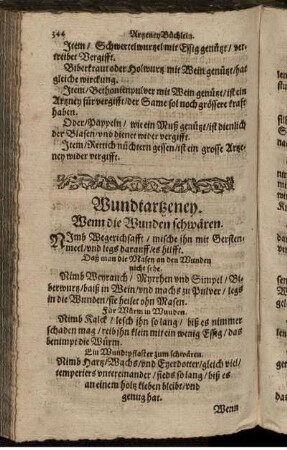 344 Artzney Büchlein.
Item/ Schwertelwurtzel mit Essig genützt/ ver-
treibet Vergifft.
Biberkraut oder Holwurtz mit Wein genützt/hat
gleiche wirckung.
Item/ Bethonienpulver mit Wein genützt/ ist ein
Artzney für vergifft/ der Same sol noch grössere krafft
haben.
Oder/ Pappeln/ wie ein Muß genützt/ ist dienlich
der Blasen/ vnd dienet wider vergifft.
Item/ Rettich nüchtern gessen/ ist ein grosse Artz-
ney wider vergifft.
Wundtartzeney.
Wenn die Wunden schwären.
NImb Wegerichsafft/ mische ihn mit Gersten-
meel/vnd legs darauff/es hilfft.
Daß man die Masen an den Wunden
nicht sehe.
Nimb Weyrauch/ Myrrhen vnd Simpel/ Bi-
berwurtz/baiß in Wein/vnd machs zu Pulver/ legs
in die Wunden/sie heilet ohn Masen.
Für Würm in Wunden.
Nimb Kalck/ lesch ihn so lang/ biß es nimmer
schaden mag/ reib ihn klein mit ein wenig Essig/ das
benimpt die Würm.
Ein Wundtpflaster zum schwären.
Nimb Hartz/ Wachs/ vnd Eyerdotter/ gleich viel/
temperiers vntereinander/ sieds so lang/ biß es
an einem holtz kleben bleibt/ vnd
genug hat.
Wenn